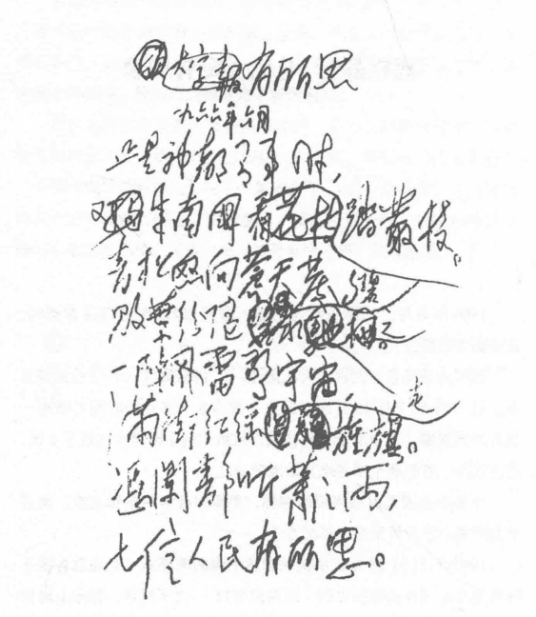 有所思
九六六年六月
正是神都有事时，
又南国踏枝。
青松怒向苍天发
败叶纷随碧水驰
一阵风雷惊宇宙
满街红绿走旌旗。
凭阑静听萧萧雨
七亿人民有所思。